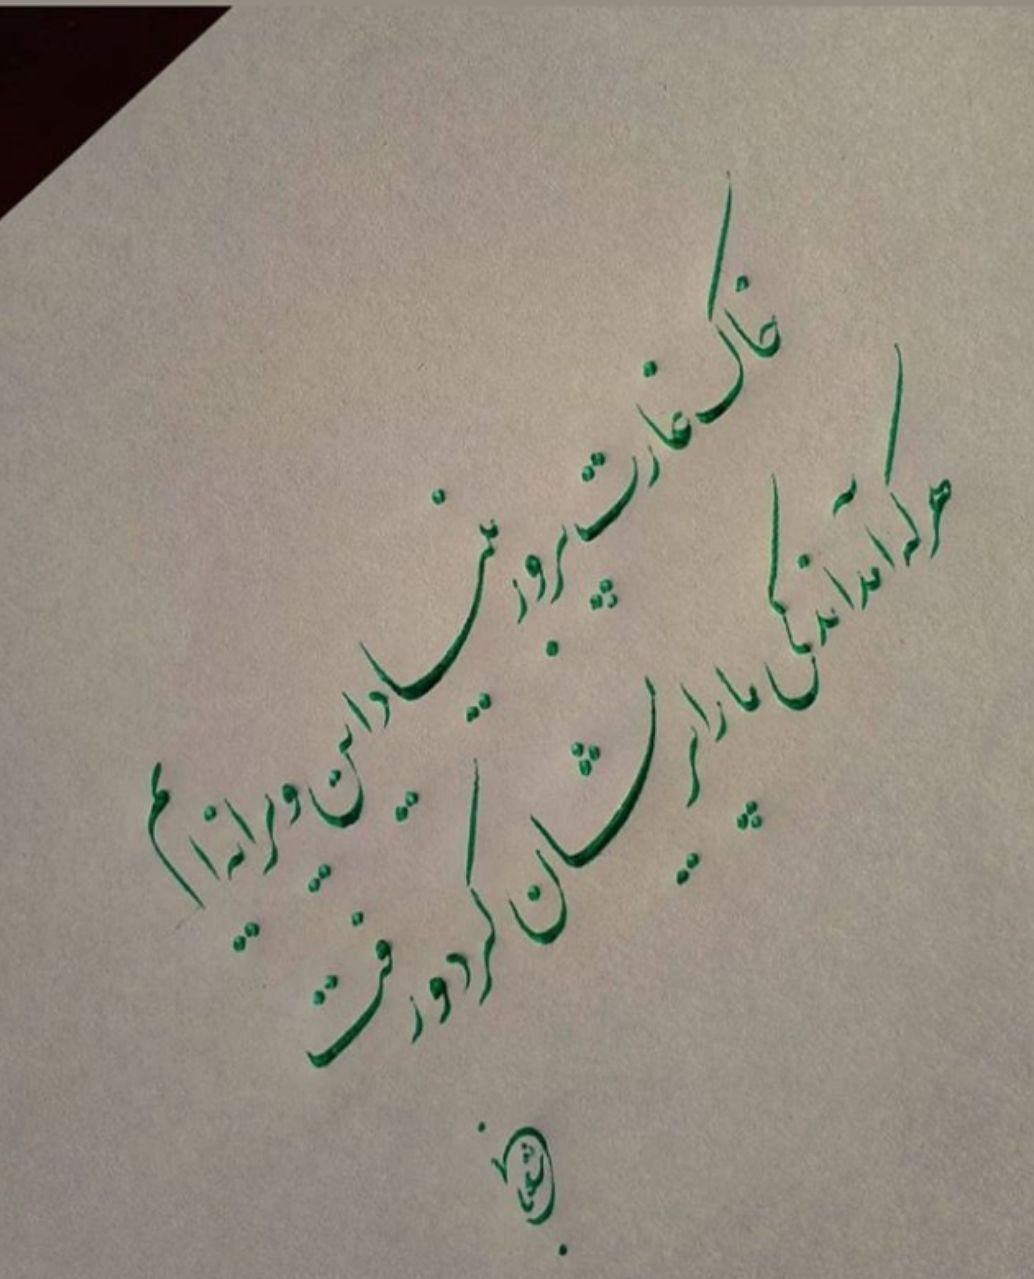 خاک غارت پرور بنیاد این ویرانه ایم
هر که آمد اندکی ما را پریشان کرد و رفت